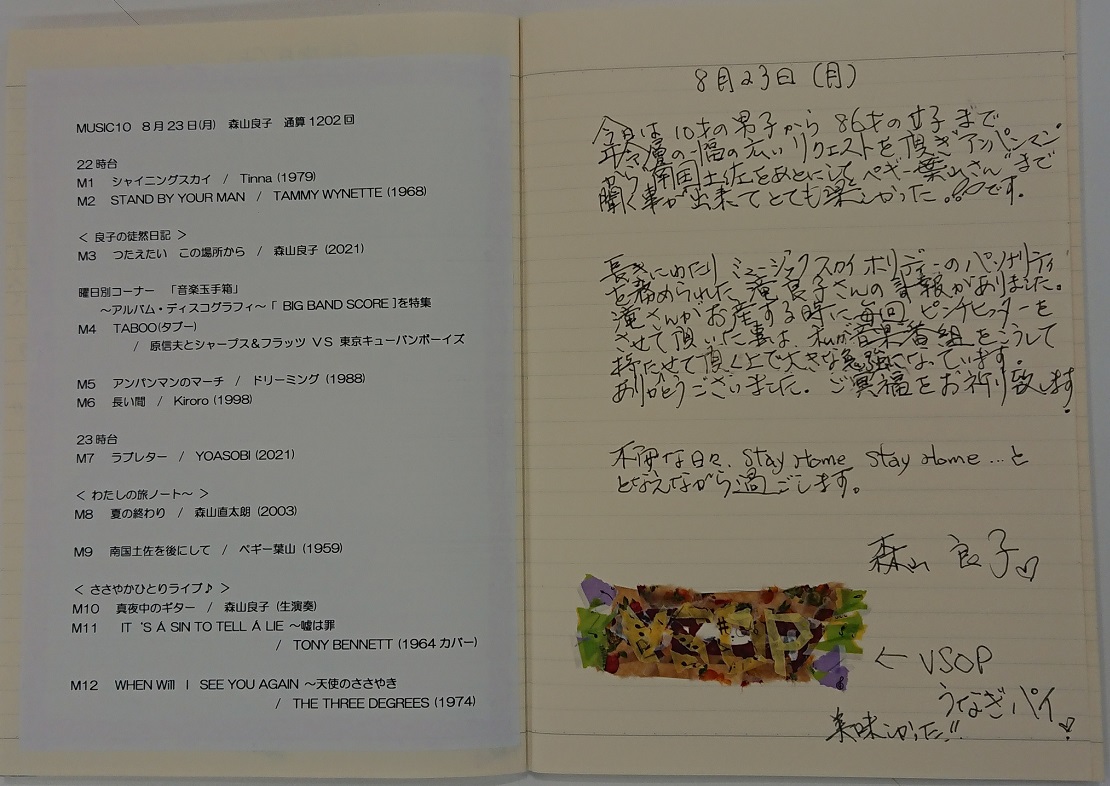 MUSIC10 8月23日(月) 森山良子 通算1202回
22時台
M1 シャイニングスカイ / Tinna (1979)
M2 STAND BY YOUR MAN / TAMMY WYNETTE (1968)
< 良子の徒然日記 >
M3 つたえたい この場所から / 森山良子 (2021)
曜日別コーナー 「音楽玉手箱」
~アルバム・ディスコグラフィ~「 BIG BAND SCORE ]を特集
M4 TABOO(タブー)
/ 原信夫とシャープス&フラッツ VS 東京キューバンボーイズ
M5 アンパンマンのマーチ / ドリーミング (1988)
M6 長い間 / Kiroro (1998)
23時台
M7 ラブレター / YOASOBI (2021)
< わたしの旅ノート~ >
M8 夏の終わり / 森山直太朗 (2003)
M9 南国土佐を後にして / ペギー葉山 (1959)
< ささやかひとりライブ♪ >
M10 真夜中のギター / 森山良子 (生演奏)
M11 IT 'S A SIN TO TELL A LIE ~嘘は罪
/ TONY BENNETT (1964 カバー)
M12 WHEN Will I SEE YOU AGAIN ~天使のささやき
/ THE THREE DEGREES (1974)
8月23日 (月)
今日は 10才の男子から 86才の女子 まで
層の幅の広い リクエストを 頂き"アンパンマン"
から"南国土佐をあとにして ペギー葉山さん"まで
聞く事が出来て とても楽しかった。です。
長きにわたり ミュージックスカイ ホリデーのパーソナリティ
を務められた 滝良子さんの訃報がありました。
滝さんが お産する時に 毎回 ピンチヒッターを
させて頂いた事は、私が音楽番組をこうして
持たせて頂く上で大きな勉強になっています。
ありがとうございました. ご冥福をお祈り致します.
不便な日々、Stay Home Stay Home … と
となえながら過ごします。
森山 良子♡
VSOP
← VSOP
うなぎパイ♡
美味しかった!!